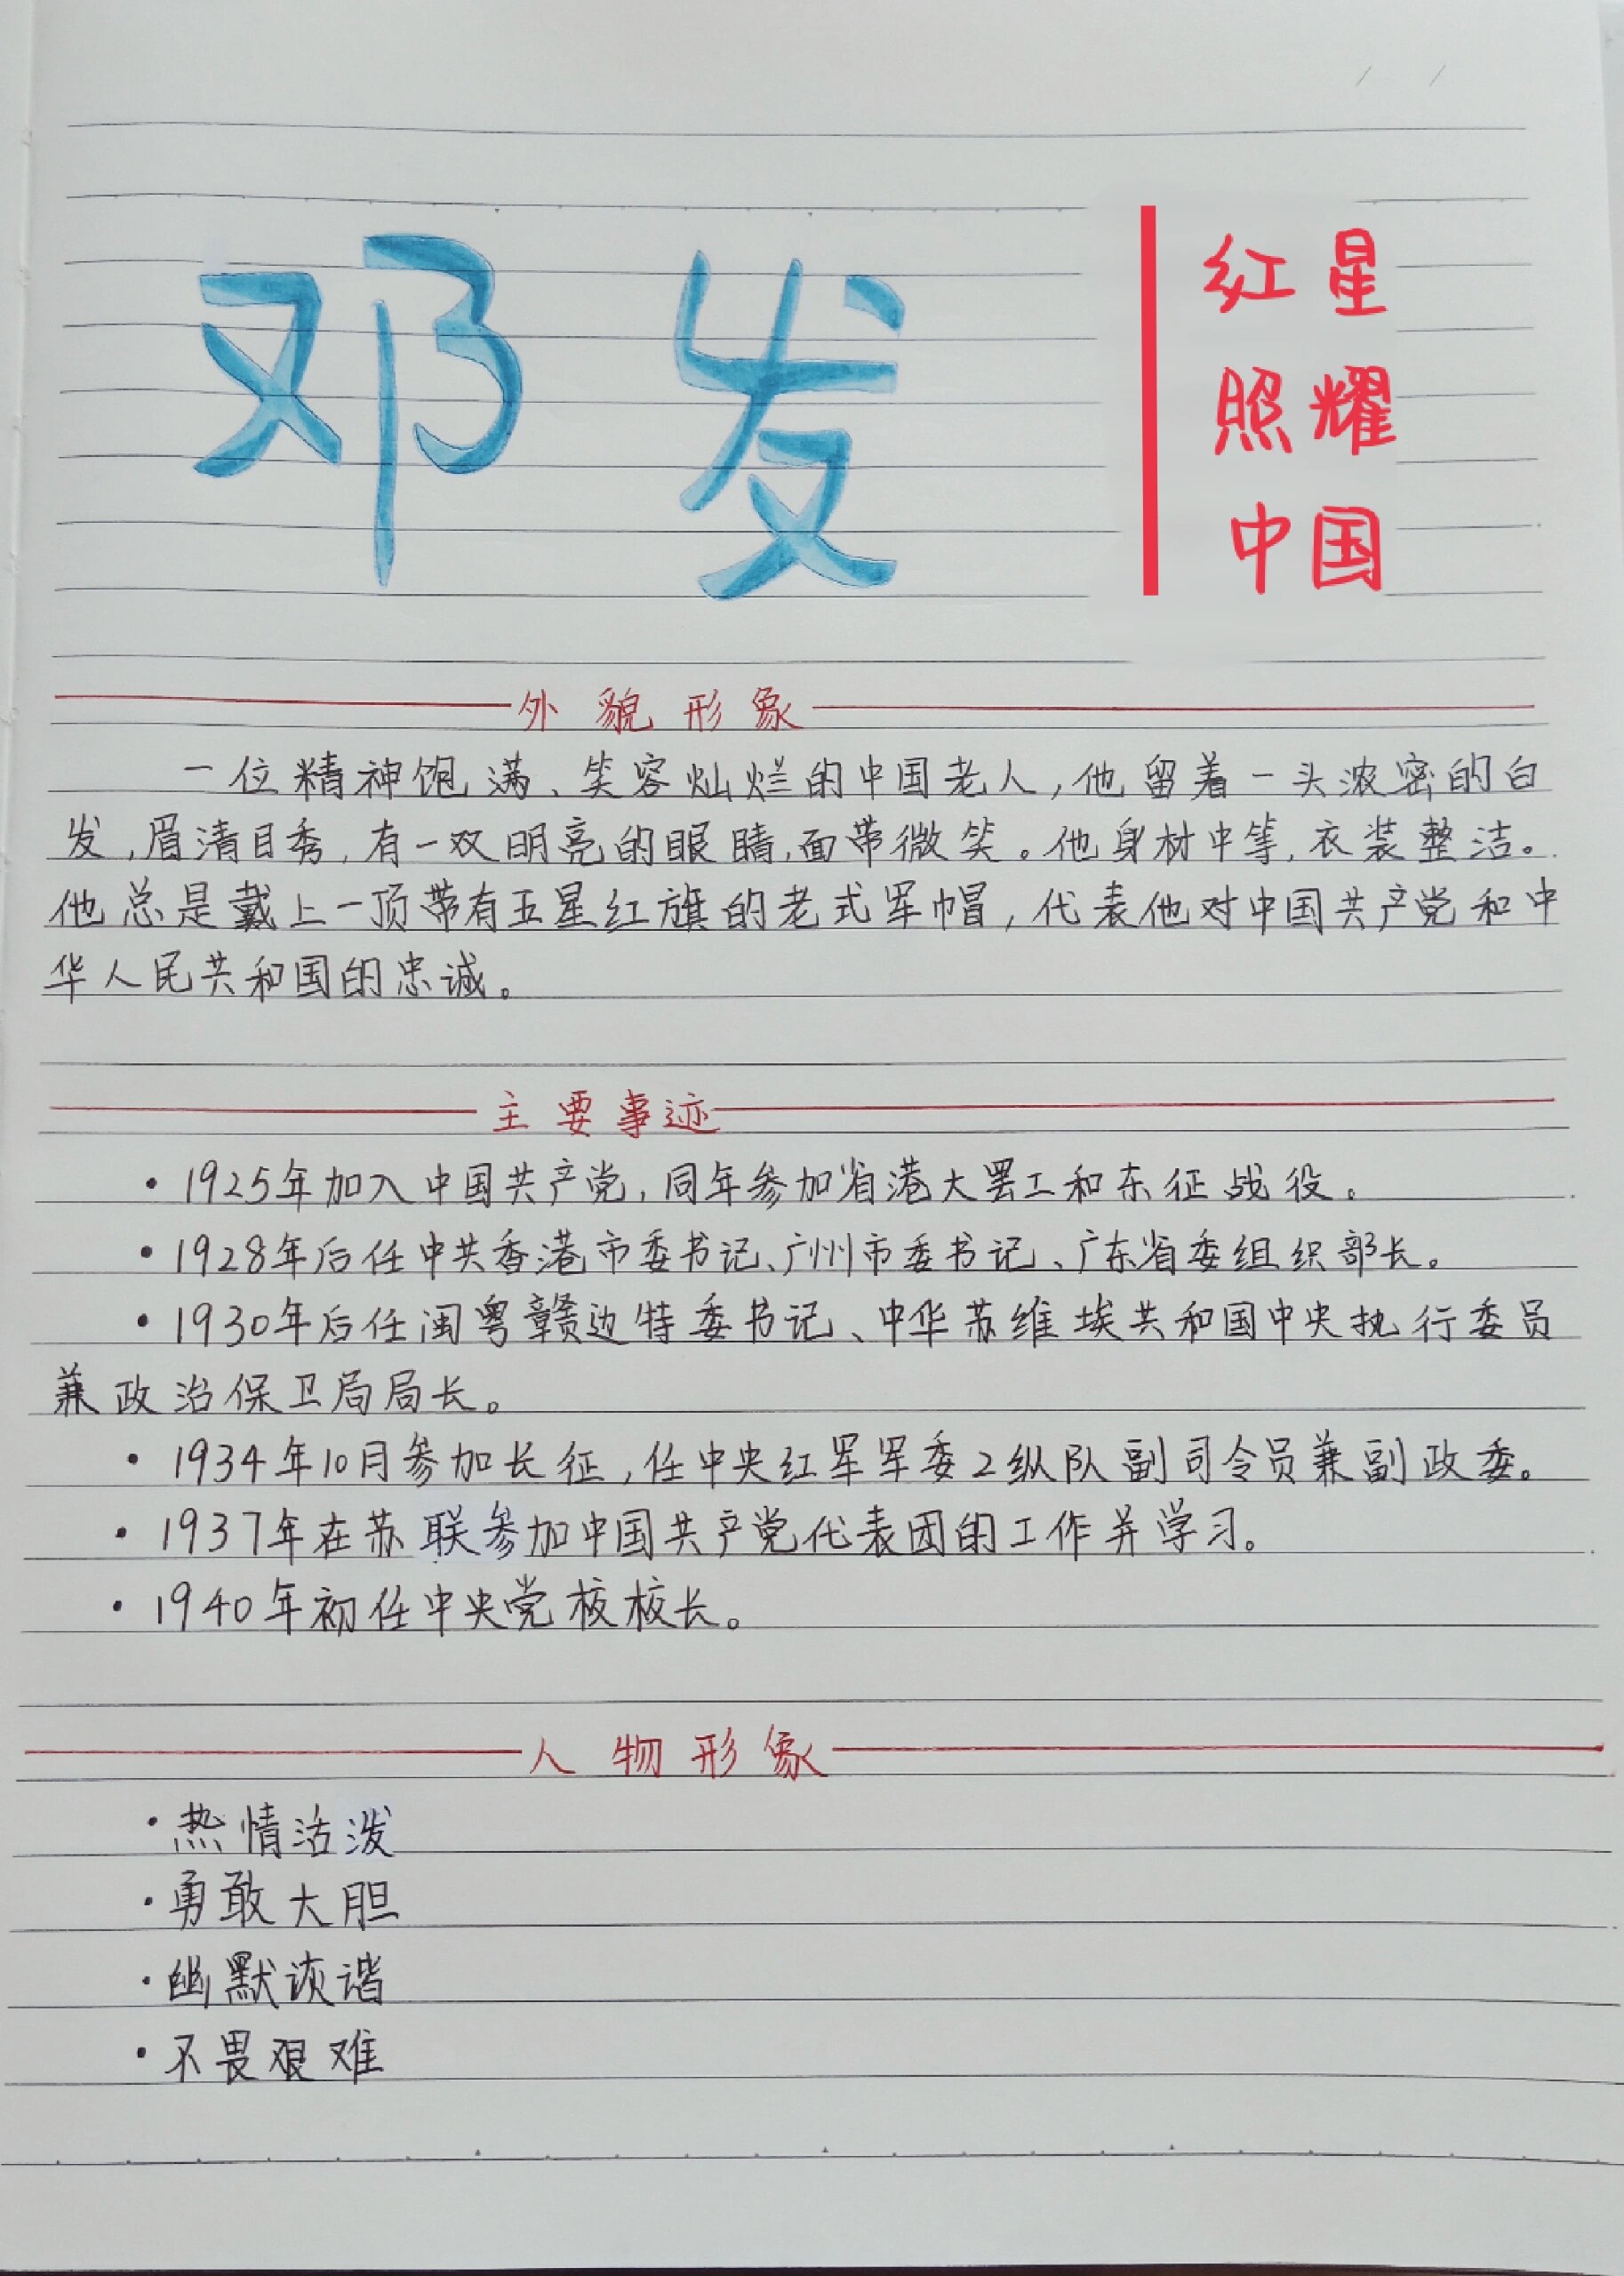 邓发
红星
照耀
中国
外貌形象
一位精神饱满、笑容灿烂的中国老人,他留着一头浓密的白
发,眉清目秀,有一双明亮的眼睛,面带微笑。他身材中等,衣装整洁。
他总是戴上一顶带有五星红旗的老式军帽,代表他对中国共产党和中
华人民共和国的忠诚。
主要事迹
·1925年加入中国共产党,同年参加省港大罢工和东征战役。
·1928年后任中共香港市委书记、广州市委书记、广东省委组织部长。
·1930年后任闽粤赣边特委书记、中华苏维埃共和国中央执行委员
兼政治保卫局局长。
·1934年10月参加长征,任中央红军军委2纵队副司令员兼副政委。
·1937年在苏联参加中国共产党代表团的工作并学习。
·1940年初任中央党校校长。
人物形象
·热情活泼
·勇敢大胆
·幽默诙谐
·不畏艰难